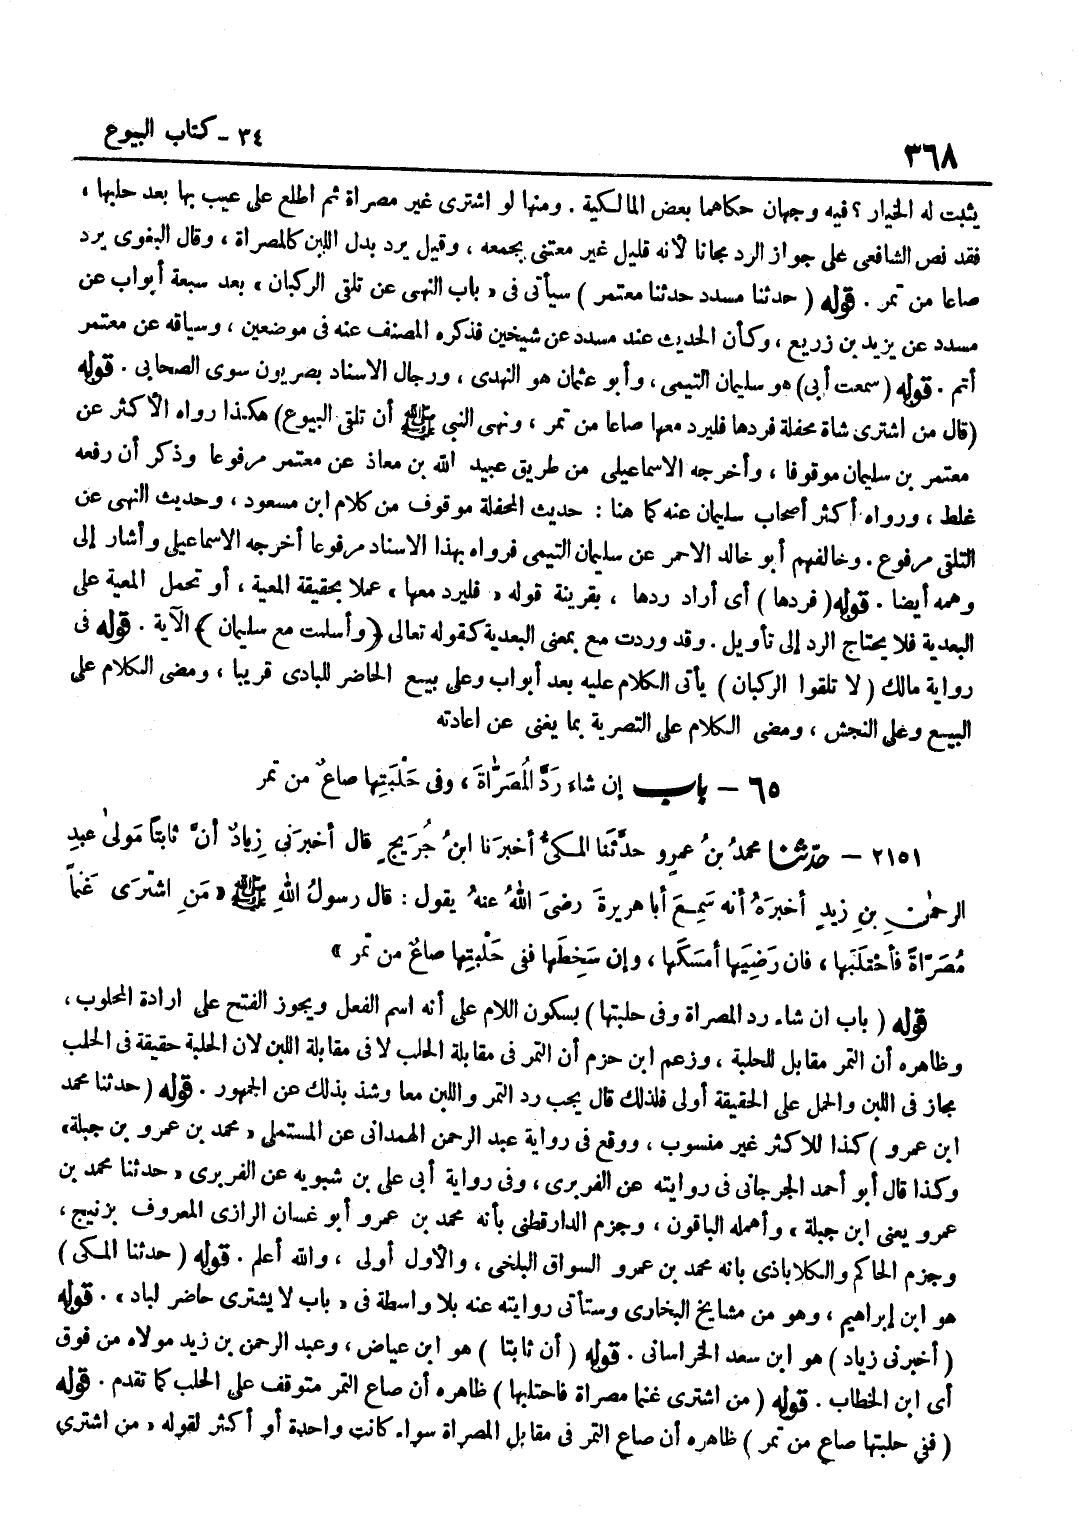 ٣٤ - كتاب البيوع
٣٦٨
يثبت له الخيار ؟ فيه وجهان حكاهما بعض المالكية . ومنها لو اشترى غير مصراة ثم اطلع على عيب بها بعد حلبها ،
فقد نص الشافعى على جواز الرد مجانا لأنه قليل غير معتنى بجمعه ، وقيل يرد بدل اللبن كالمصراة ، وقال البغوى يرد
صاعا من تمر . قوله ( حدثنا مسدد حدثنا معتمر ) سيأتى فى « باب النهى عن تلقى الركبان » بعد سبعة أبواب عن
مسدد عن يزيد بن زريع ، وكأن الحديث عند مسدد عن شيخين فذكره المصنف عنه فى موضعين ، وسياقه عن معتمر
أتم . قوله ( سمعت أبى ) هو سليمان التيمى ، وأبو عثمان هو النهدى ، ورجال الاسناد بصريون سوى الصحابى . قوله
( قال من اشترى شاة محفلة فردها فليرد معها صاعا من تمر ، ونهى النبى ﷺ أن تلقى البيوع ) هكذا رواه الأكثر عن
معتمر بن سليمان موقوفا ، وأخرجه الاسماعيلى من طريق عبيد الله بن معاذ عن معتمر مرفوعا وذكر أن رفعه
غلط ، ورواه أكثر أصحاب سليمان عنه كما هنا : حديث المحفلة موقوف من كلام ابن مسعود ، وحديث النهى عن
التلقى مرفوع . وخالفهم أبو خالد الاحمر عن سليمان التيمى فرواه بهذا الاسناد مرفوعا أخرجه الاسماعيلى وأشار إلى
وهمه أيضا . قوله ( فردها ) أى أراد ردها ، بقرينة قوله « فليرد معها » عملا بحقيقة المعية ، أو تحمل المعية على
البعدية فلا يحتاج الرد إلى تأويل . وقد وردت مع بمعنى البعدية كقوله تعالى ﴿ وأسلمت مع سليمان ﴾ الآية . قوله فى
رواية مالك ( لا تلقوا الركبان ) يأتى الكلام عليه بعد أبواب وعلى بيع الحاضر للبادى قريبا ، ومضى الكلام على
البيع وعلى النجش ، ومضى الكلام على التصرية بما يغنى عن اعادته
٦٥ - باب إن شاءَ رَدَّ المُصَرَّاةَ ، وفى حَلْبَتِها صاعٌ من تمر
٢١٥١ - حدّثنا محمدُ بنُ عمرٍو حدَّثَنا المكىُّ أخبرَنا ابنُ جُرَيجٍ قال أخبرَنى زِيادٌ أنَّ ثابتاً مَولىٰ عبدِ
الرحمٰنِ بنِ زيدٍ أخبرَهُ أنه سَمِعَ أبا هريرةَ رضىَ اللهُ عنهُ يقول : قال رسولُ اللهِ ﷺ « مَنِ اشترَى غنماً
مُصَرّاةً فأحْتَلَبَها ، فان رَضِيَها أمسَكَها ، وإن سَخِطَها ففى حَلْبَتِها صاعٌ من تمر »
قوله ( باب ان شاء رد المصراة وفى حلبتها ) بسكون اللام على أنه اسم الفعل ويجوز الفتح على ارادة المحلوب ،
وظاهره أن التمر مقابل للحلبة ، وزعم ابن حزم أن التمر فى مقابلة الحلب لا فى مقابلة اللبن لان الحلبة حقيقة فى الحلب
مجاز فى اللبن والحمل على الحقيقة أولى فلذلك قال يجب رد التمر واللبن معا وشذ بذلك عن الجمهور . قوله ( حدثنا محمد
ابن عمرو ) كذا للاكثر غير منسوب ، ووقع فى رواية عبد الرحمن الهمدانى عن المستملى « محمد بن عمرو بن جبلة »
وكذا قال أبو أحمد الجرجانى فى روايته عن الفربرى ، وفى رواية أبى على بن شبويه عن الفربرى « حدثنا محمد بن
عمرو يعنى ابن جبلة » وأهمله الباقون ، وجزم الدارقطنى بأنه محمد بن عمرو أبو غسان الرازى المعروف بزنيج ،
وجزم الحاكم والكلاباذى بانه محمد بن عمرو السواق البلخى ، والأول أولى ، والله أعلم . قوله ( حدثنا المكى )
هو ابن إبراهيم ، وهو من مشايخ البخارى وستأتى روايته عنه بلا واسطة فى « باب لا يشترى حاضر لباد » . قوله
( أخبرنى زياد ) هو ابن سعد الخراسانى . قوله ( أن ثابتا ) هو ابن عياض ، وعبد الرحمن بن زيد مولاه من فوق
أى ابن الخطاب . قوله ( من اشترى غنما مصراة فاحتلبها ) ظاهره أن صاع التمر متوقف على الحلب كما تقدم . قوله
( ففى حلبتها صاع من تمر ) ظاهره أن صاع التمر فى مقابل المصراة سواء كانت واحدة أو أكثر لقوله « من اشترى